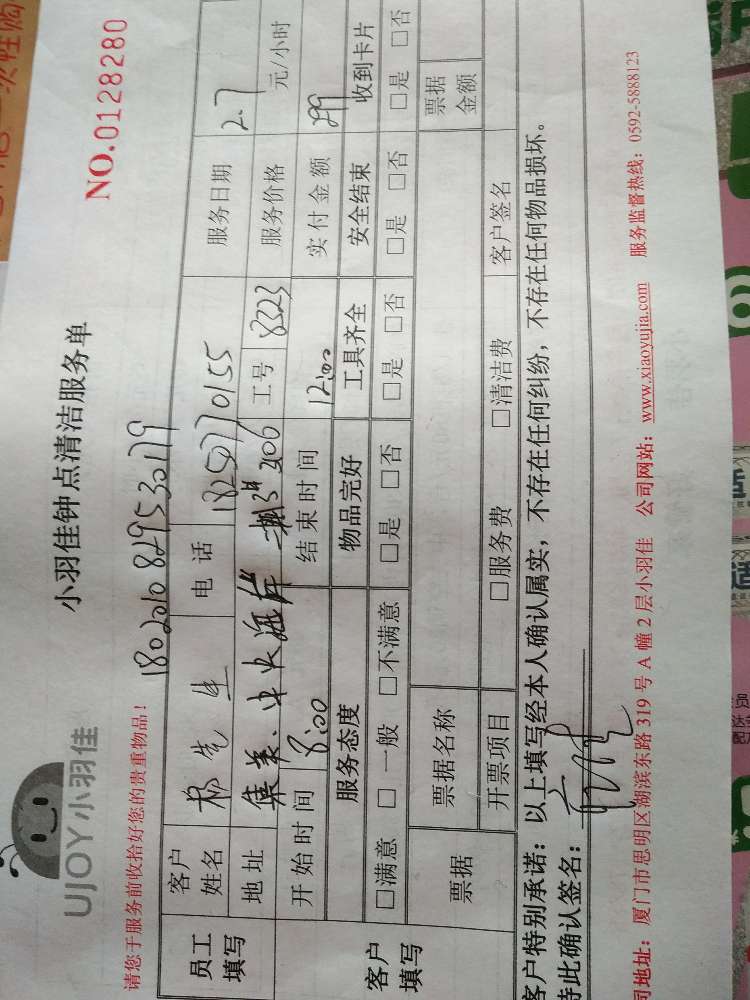 小羽佳钟点清洁服务单
UJOY小羽佳
NO.0128280
请您于服务前收拾好您的贵重物品！
员工填写
客户姓名 先生 电话 18250770155 服务日期 2.7
地址 集美.中央海岸 306 工号 8323 服务价格 元/小时
开始时间 8:00 结束时间 12:00 实付金额 299
客户填写
服务态度 物品完好 工具齐全 安全结束 收到卡片
□满意 □一般 □不满意 □是 □否 □是 □否 □是 □否 □是 □否
票据 票据名称 票据金额
开票项目 □服务费 □清洁费 客户签名
客户特别承诺：以上填写经本人确认属实，不存在任何纠纷，不存在任何物品损坏。
特此确认签名：
司地址：厦门市思明区湖滨东路 319 号 A 幢 2 层小羽佳 公司网站：www.xiaoyujia.com 服务监督热线：0592-5888123